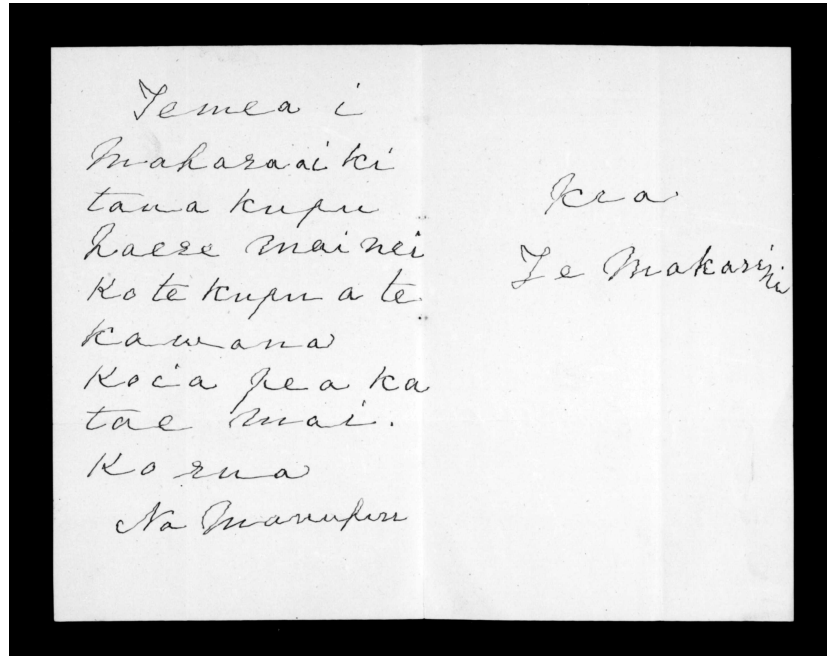 Temea i
Maharaai ki
tana kupu
haere mai nei
Ko te kupu a te
Kawana
Koia pea ka
tae mai.
Ko rua
Na Manupiri
Kia
Te Makarini